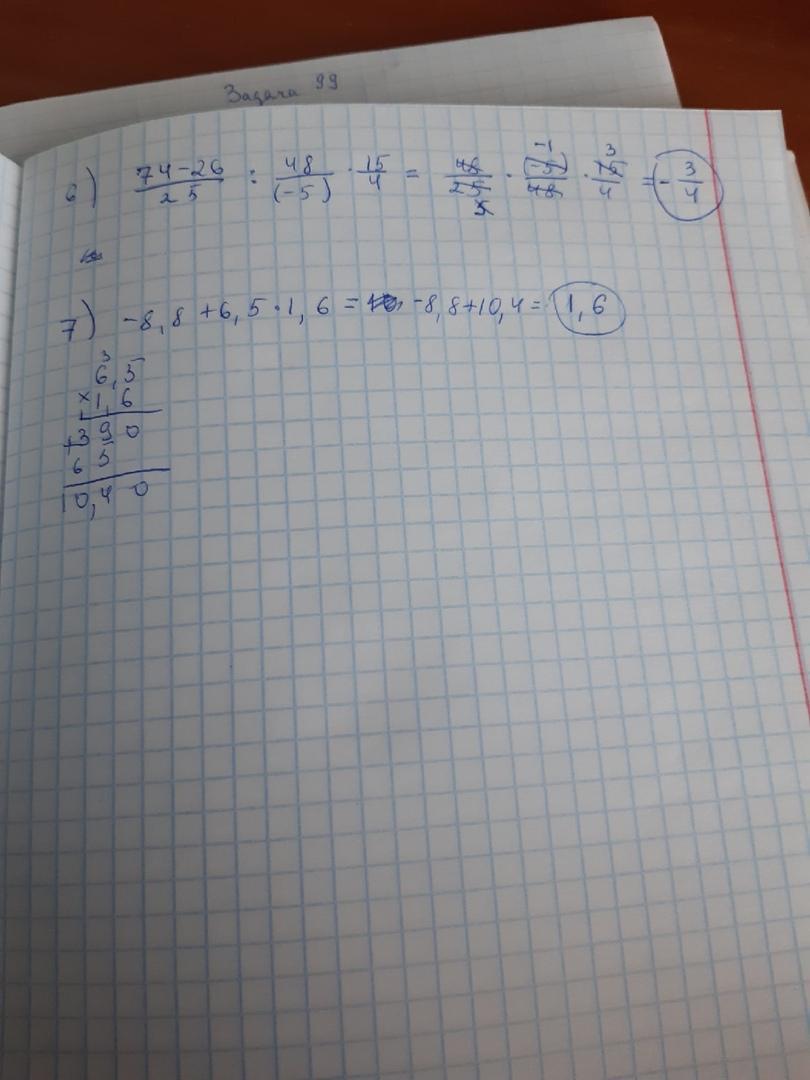 Задача 99
6) 74-26/25 : 48/(-5) · 15/4 = 48/25 5 · -1 (-5)/48 · 3 15/4 = -3/4
7) -8,8 + 6,5 · 1,6 = -8,8+10,4 = 1,6
3
6,5
× 1,6
+390
65
10,40